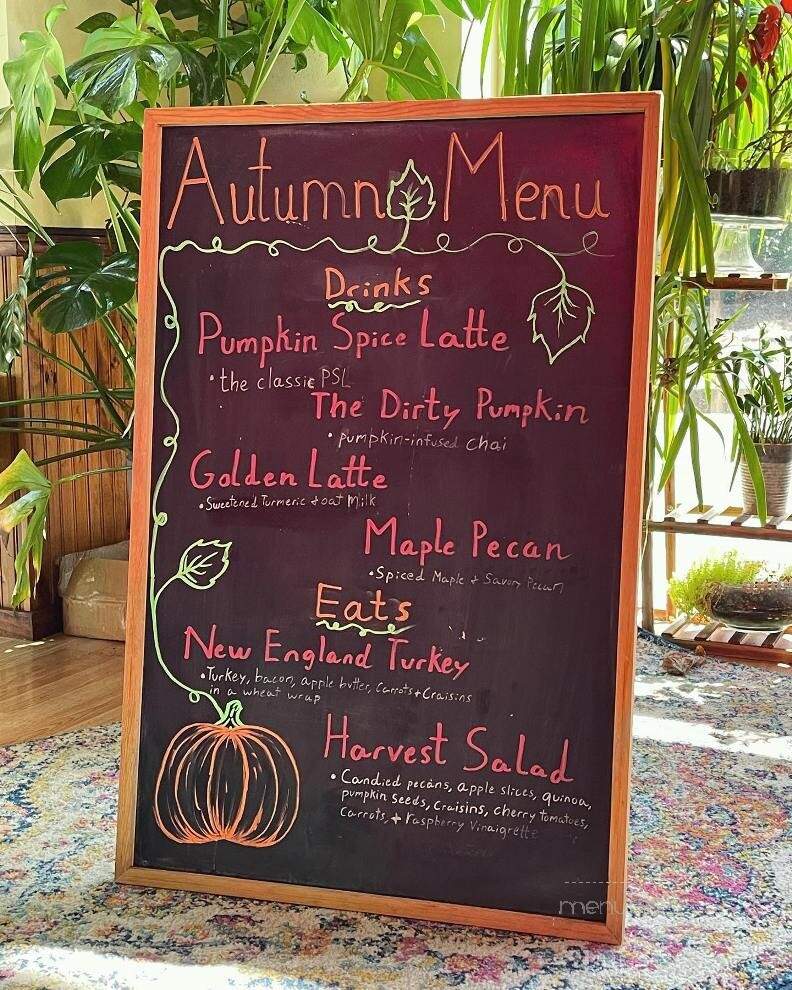 Autumn Menu
Drinks
Pumpkin Spice Latte
• the classic PSL
The Dirty Pumpkin
• pumpkin-infused chai
Golden Latte
• Sweetened Turmeric + oat Milk
Maple Pecan
• Spiced Maple + Savory Pecan
Eats
New England Turkey
• Turkey, bacon, apple butter, Carrots + Craisins
in a wheat wrap
Harvest Salad
• Candied pecans, apple slices, quinoa,
pumpkin seeds, Craisins, cherry tomatoes,
Carrots, + raspberry Vinaigrette